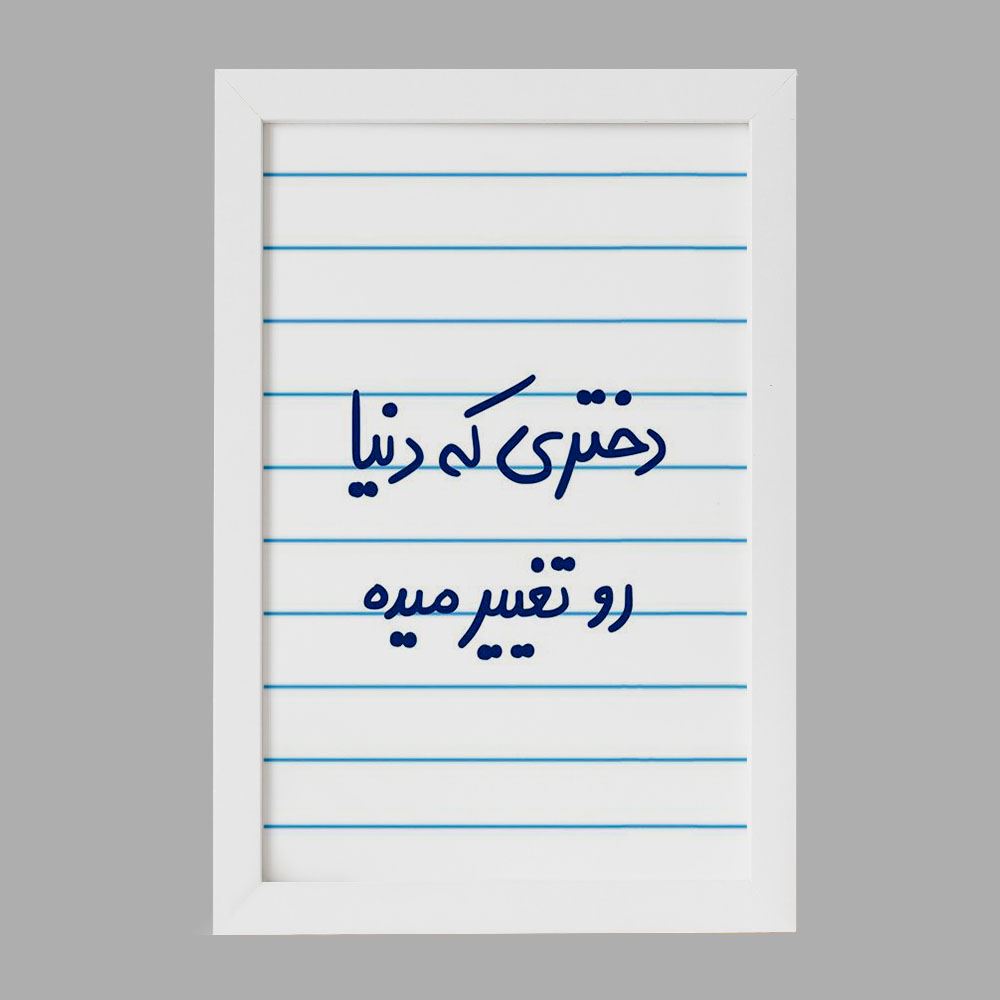 دختری که دنیا
رو تغییر میده